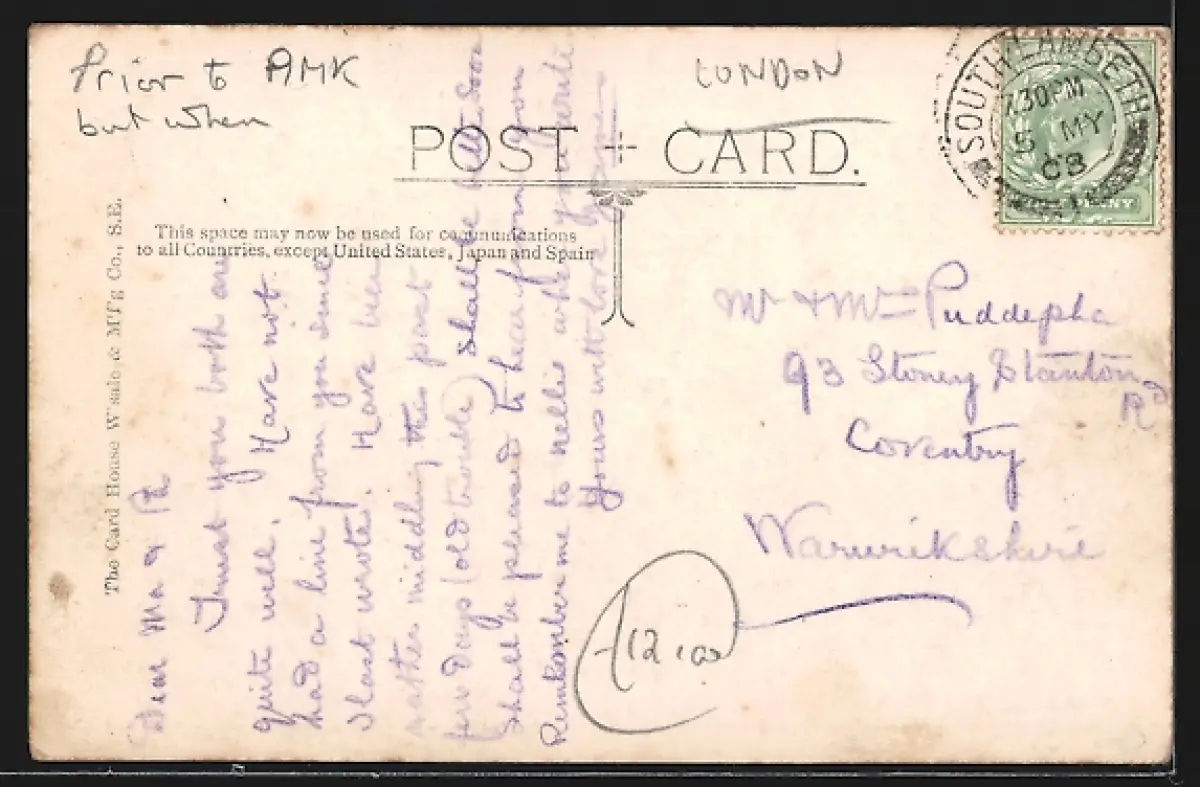 Prior to AMK
but when
LONDON
POST CARD.
SOUTH LAMBETH
7.30PM
5 MY
08
PENNY
This space may now be used for communications
to all Countries, except United States, Japan and Spain
The Card House W'sale & MT'g Co., S.E.
Dear Ma & Pa
Trust you both are
quite well. Have not
had a line from you since
I last wrote. Have been
rather middling this past
few Days (old trouble) shall be alright soon
Shall be pleased to hear from you
Remember me to Nellie when you write
Yours with love
Mr & Mrs Puddepha
93 Stoney Stanton
Rd
Coventry
Warwickshire